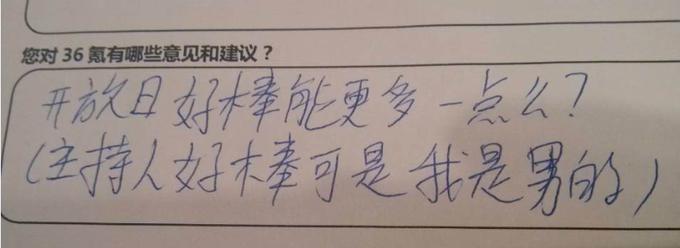 您对 36 氪有哪些意见和建议？
开放日好棒能更多一点么？
（主持人好棒可是我是男的）